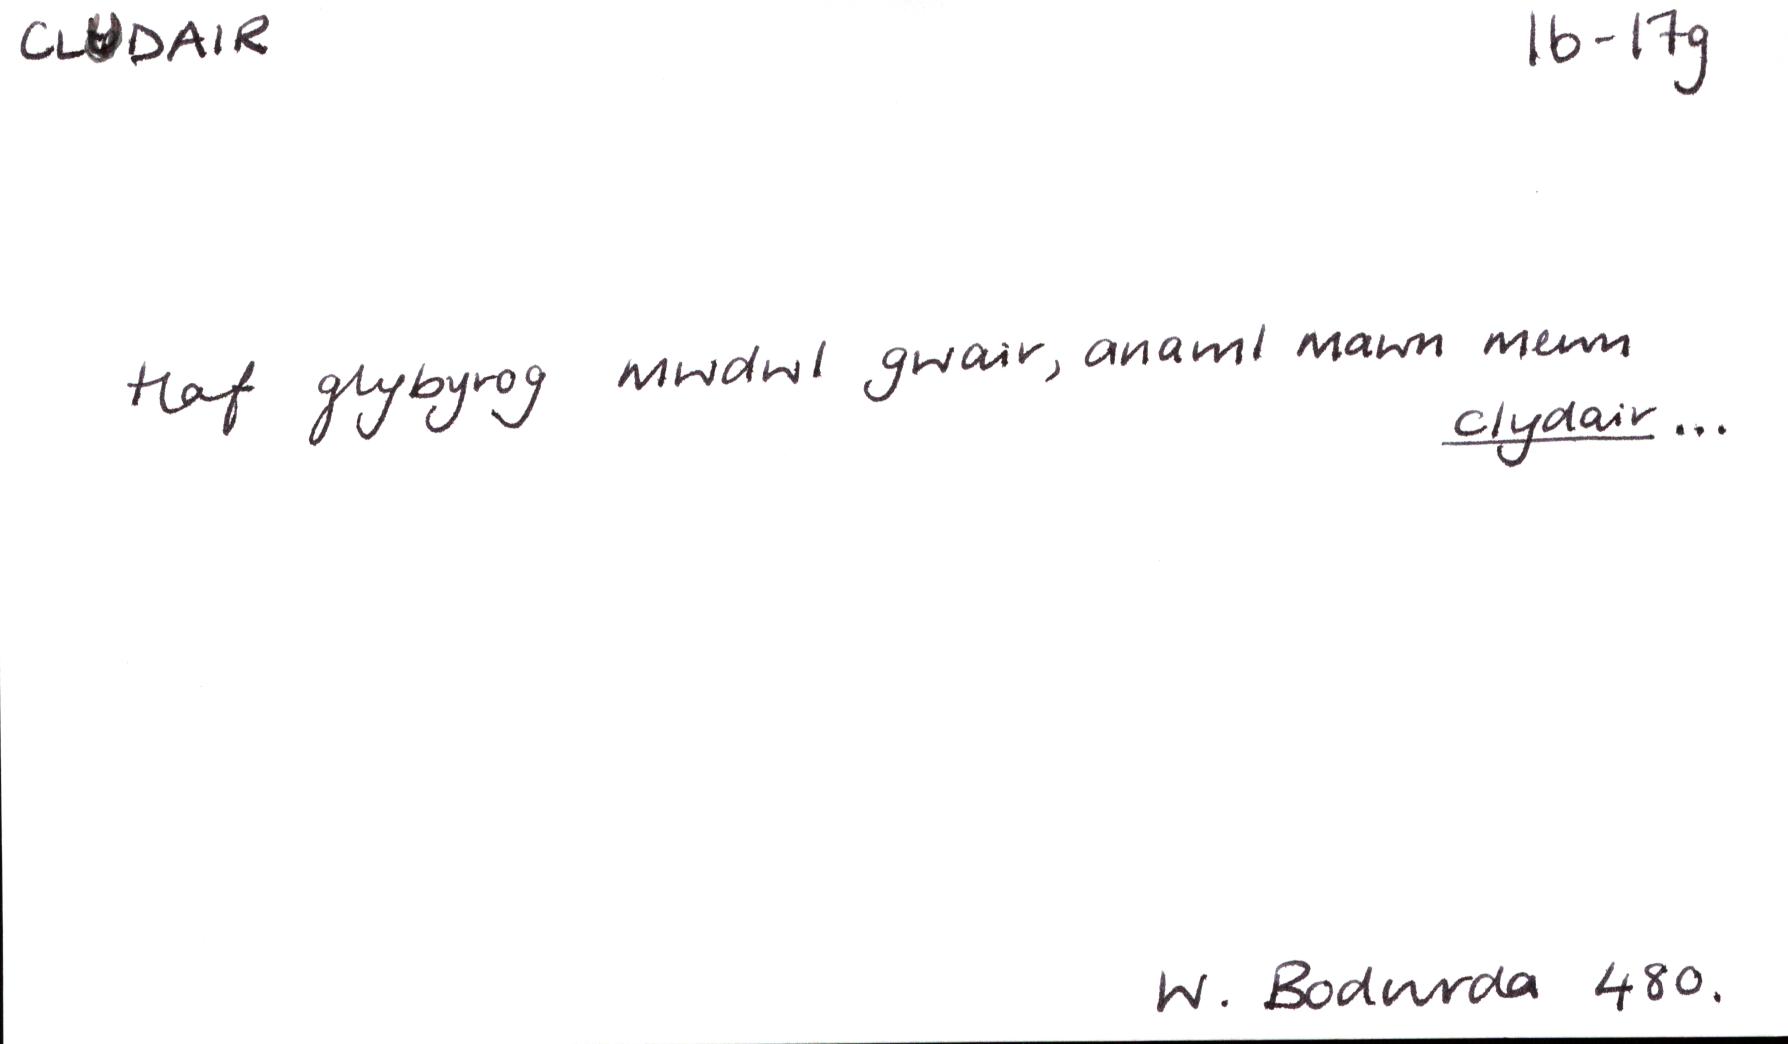 CLUDAIR 16-17g
Haf glybyrog mwdwl gwair, anaml mawn mewn
clydair...
W. Bodwrda 480.